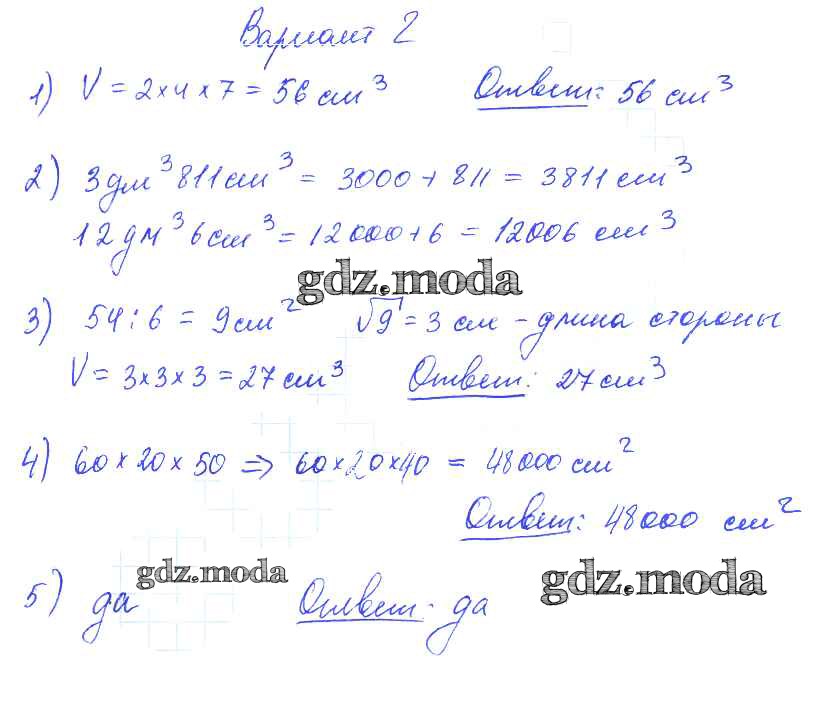 Вариант 2
1) V = 2×4×7 = 56 см³ Ответ: 56 см³
2) 3 дм³ 811 см³ = 3000 + 811 = 3811 см³
12 дм³ 6 см³ = 12000+6 = 12006 см³
gdz.moda
3) 54:6 = 9 см² √9 = 3 см - длина стороны
V = 3×3×3 = 27 см³ Ответ: 27 см³
4) 60×20×50 ⇒ 60×20×40 = 48000 см²
Ответ: 48000 см²
gdz.moda gdz.moda
5) да Ответ: да